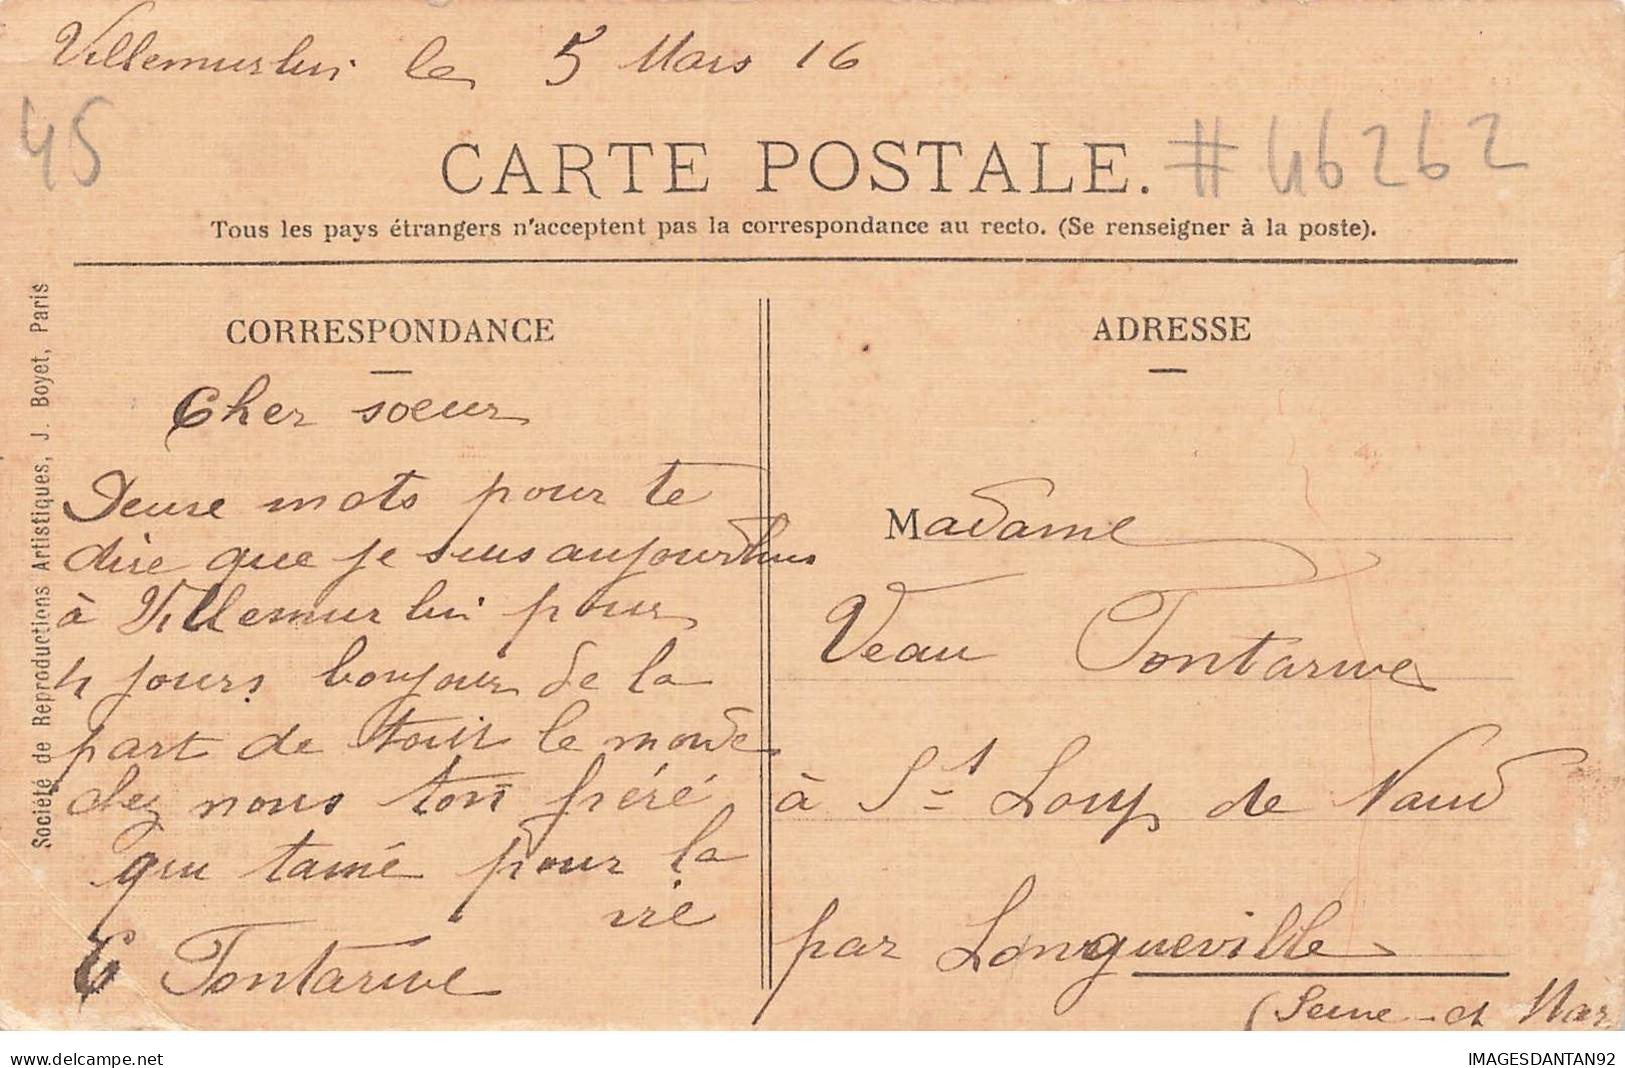 Villemurlin le 5 Mars 16
45
CARTE POSTALE. #46262
Tous les pays étrangers n'acceptent pas la correspondance au recto. (Se renseigner à la poste).
Société de Reproductions Artistiques, J. Boyet, Paris
CORRESPONDANCE
Cher soeur
Deuse mots pour te
dire que je suis aujourdhui
à Villemurlin pour
4 jours bonjour de la
part de tout le monde
chez nous ton fréré
qui tamé pour la
vie
E Tontarive
ADRESSE
Madame
Veau Tontarive
à St Loup de Naud
par Longueville
(Seine et Mar
delcampe.net
IMAGESDANTAN92